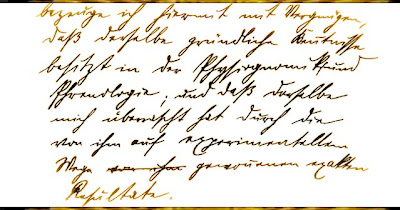 bezeuge ich hiermit mit Vergnügen,
daß derselbe gründliche Kentnisse
besitzt in der Physiognomik und
Phrenologie; und daß derselbe
mich überrascht hat durch die
von ihm auf experimentellem
Wege von ihm gewonenen exakten
Resultate.